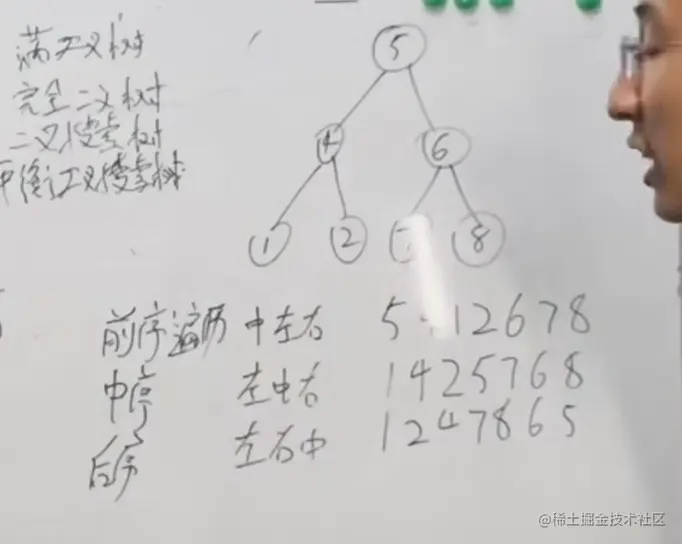 满二叉树
完全二叉树
二叉搜索树
平衡二叉搜索树
5
4 6
1 2 7 8
前序遍历 中左右 5 4 1 2 6 7 8
中序 左中右 1 4 2 5 7 6 8
后序 左右中 1 2 4 7 8 6 5
@稀土掘金技术社区